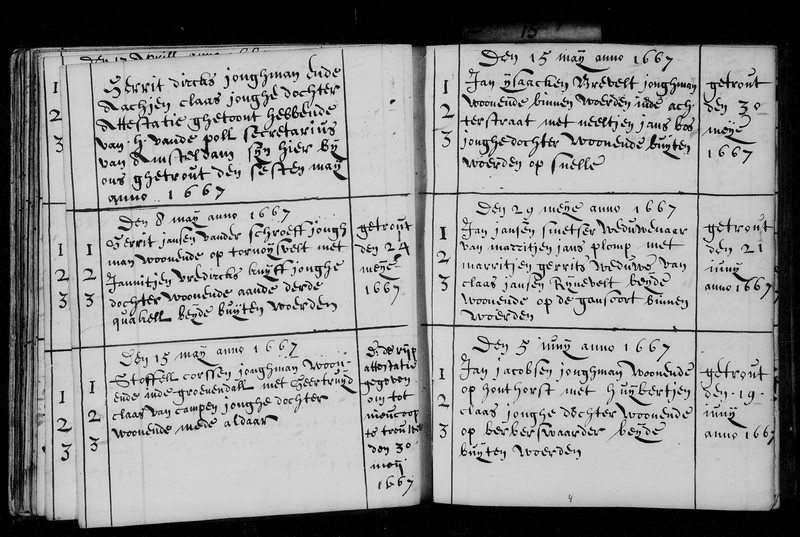 15
den 17 Aprill anno 166
1 Gerrit dircks jonghman ende
Aachjen claas jonghe dochter
2 Attestatie ghetoont hebbende
van H: vande poll secretarius
3 van Amsteldam syn hier by
ons ghetrout den sesten maÿ
anno 1667
Den 8 maÿ anno 1667
1 1 Gerrit jansen vander schroeff jongh
man woonende op tornoysvelt met
2 2 Jannitjen vredircks kruyff jonghe
3 3 dochter woonende aande derde
quakell beyde buÿten woerden
getrout
den 24
meye
1667
Den 15 maÿ anno 1667
1 1 Stoffell corssen jonghman woon-
ende inde groenendall met Geertruyd
2 2 claas van campen jonghe dochter
3 3 woonende mede aldaar
attestatie
gegeven
om tot
nieucoop
te trouwen
den 30
meÿ
1667
Den 15 maÿ anno 1667
1 Jan ysaacken Brevelt jonghman
2 woonende binnen woerden inde ach-
terstraat met neeltjen jans bos
3 jonghe dochter woonende buÿten
woerden op snelle
getrout
den 30
meye
1667
Den 29 meye anno 1667
1 Jan jansen smetser weduwenaar
van marritjen jans plomp met
2 marritjen gerrits weduwe van
3 claas jansen Rynevelt beyde
woonende op de gansoort binnen
woerden
getrout
den 21
junÿ
anno 1667
Den 5 junÿ anno 1667
1 Jan jacobsen jonghman woonende
op honthorst met huÿbertjen
2 claas jonghe dochter woonende
3 op berberswaarder beyde
buÿten woerden
getrout
den 19
junÿ
anno 1667
4